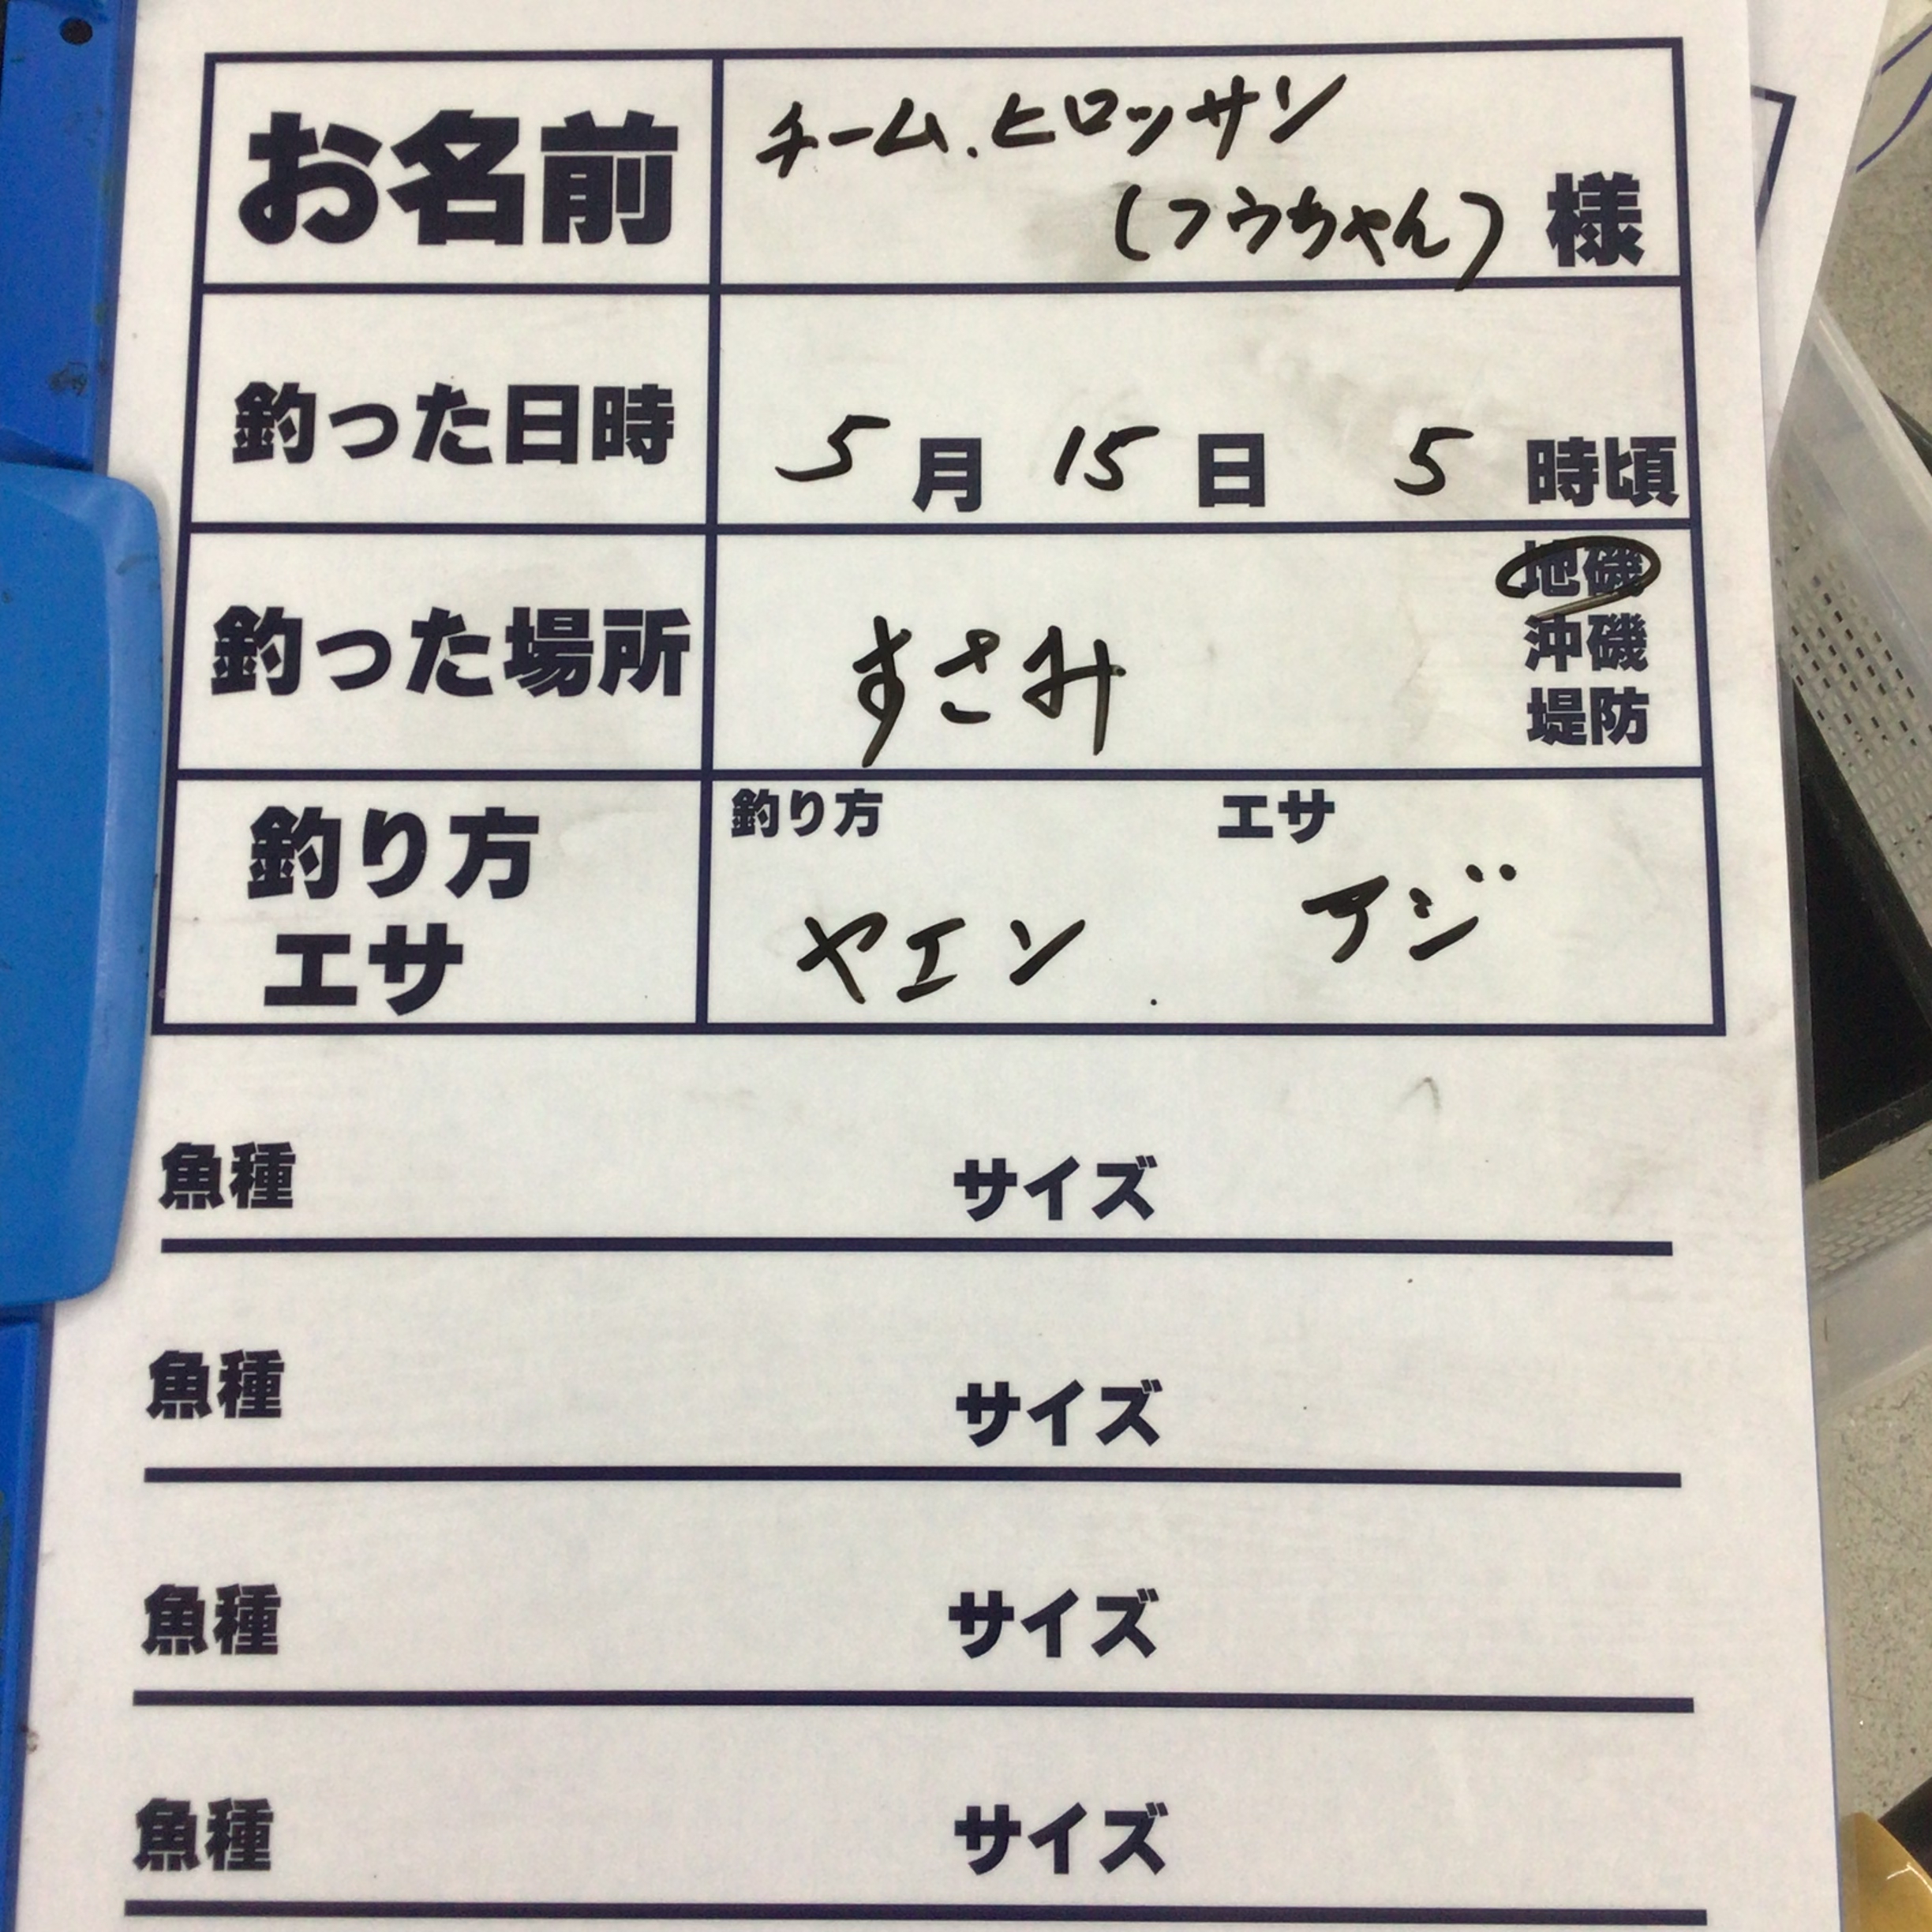 お名前 チーム.ヒロッサン
(フウちゃん) 様
釣った日時 5月15日 5時頃
釣った場所 すさみ 地磯
沖磯
堤防
釣り方 エサ
釣り方 エサ
ヤエン アジ
魚種 サイズ
魚種 サイズ
魚種 サイズ
魚種 サイズ